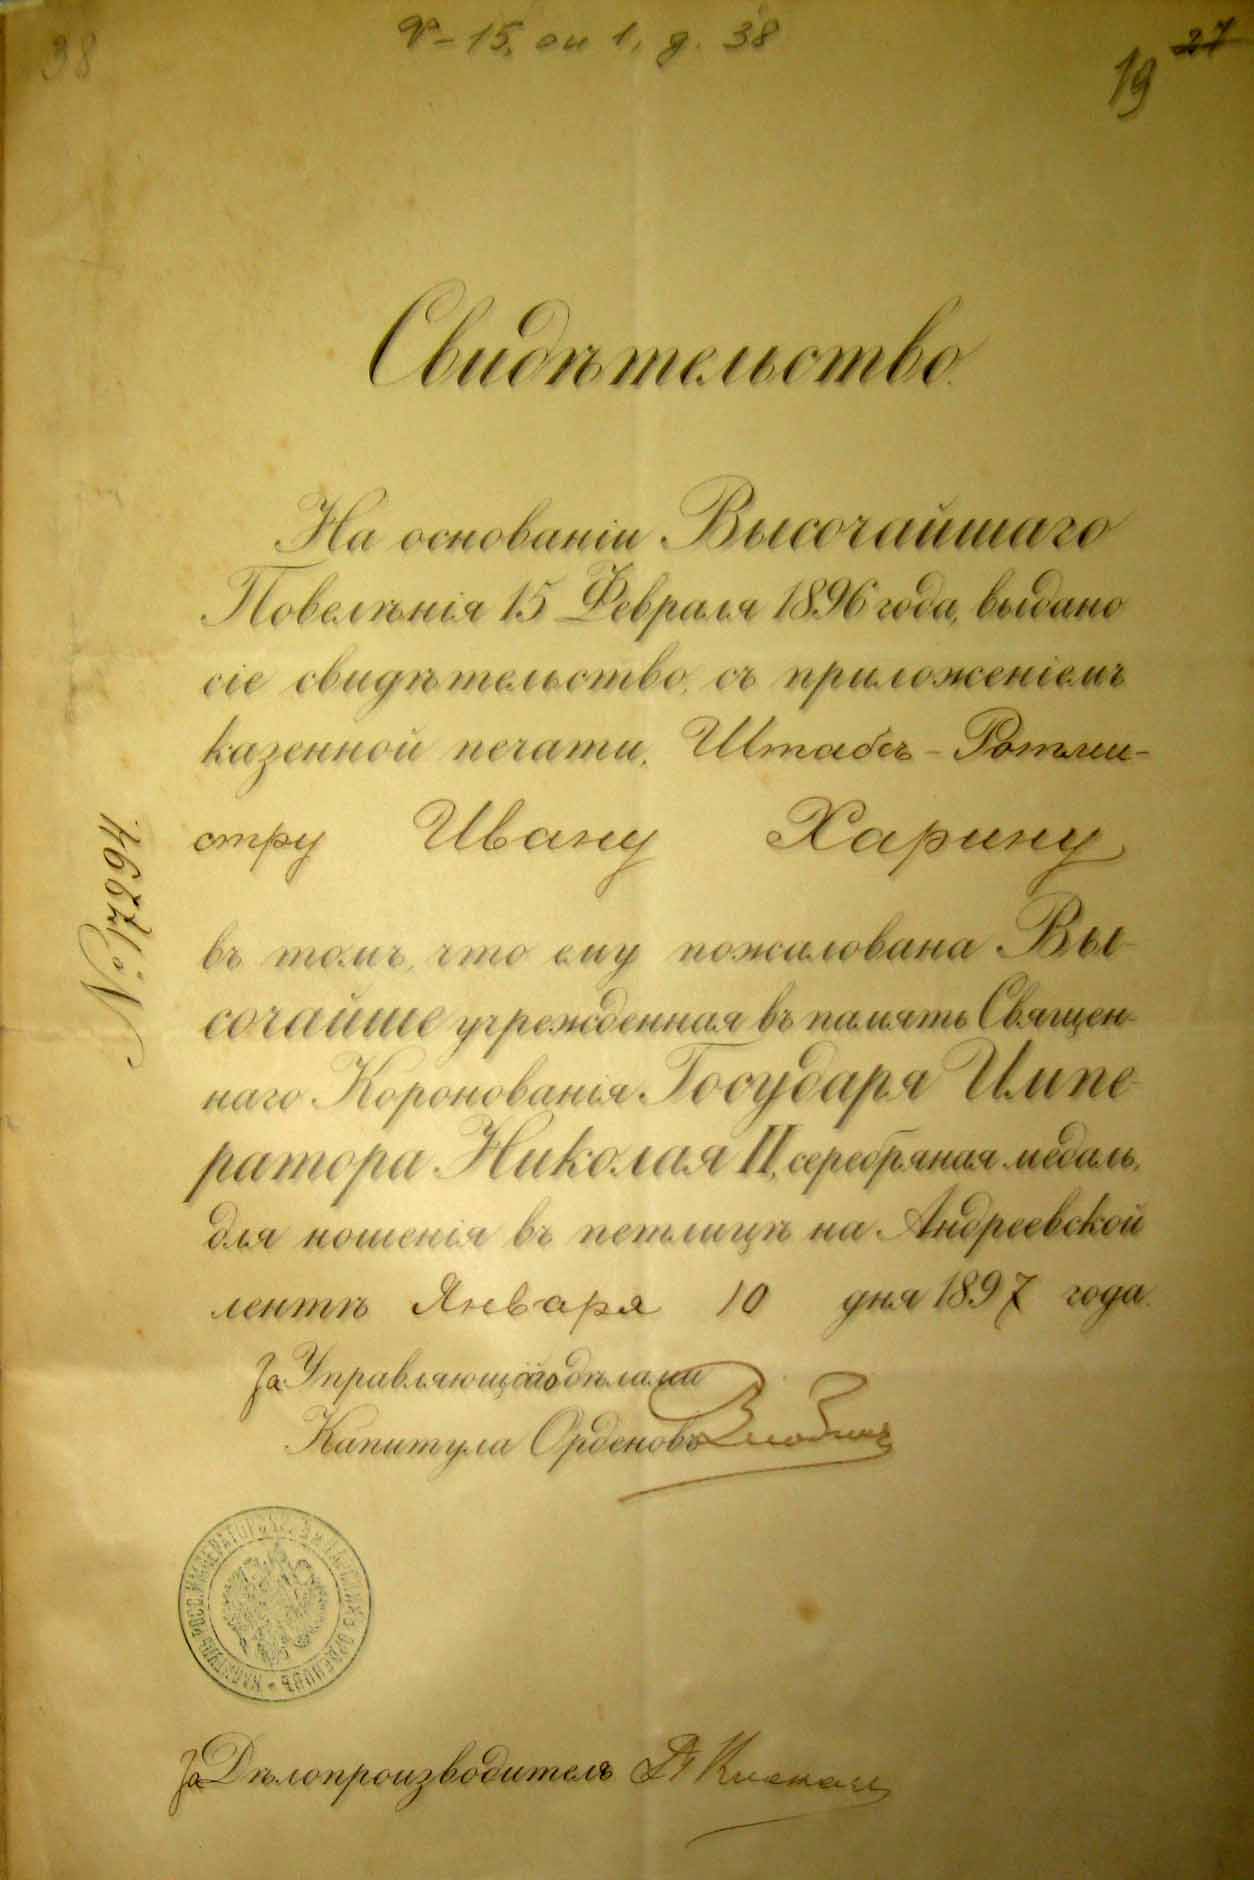 38
Ф-15, оп 1, д. 38
27
19
Свидѣтельство.
На основаніи Высочайшаго
Повелѣнія 15 Февраля 1896 года, выдано
сіе свидѣтельство, съ приложеніемъ
казенной печати, Штабсъ-Ротми-
стру Ивану Харину
въ томъ, что ему пожалована Вы-
сочайше учрежденная въ память Священ-
наго Коронованія Государя Импе-
ратора Николая II, серебряная медаль,
для ношенія въ петлицѣ на Андреевской
лентѣ Января 10 дня 1897 года.
№ 17294.
За Управляющаго дѣлами
Капитула Орденовъ
КАПИТУЛЪ РОСС. ИМПЕРАТОРСКИХЪ И ЦАРСКИХЪ ОРДЕНОВЪ
За Дѣлопроизводителя